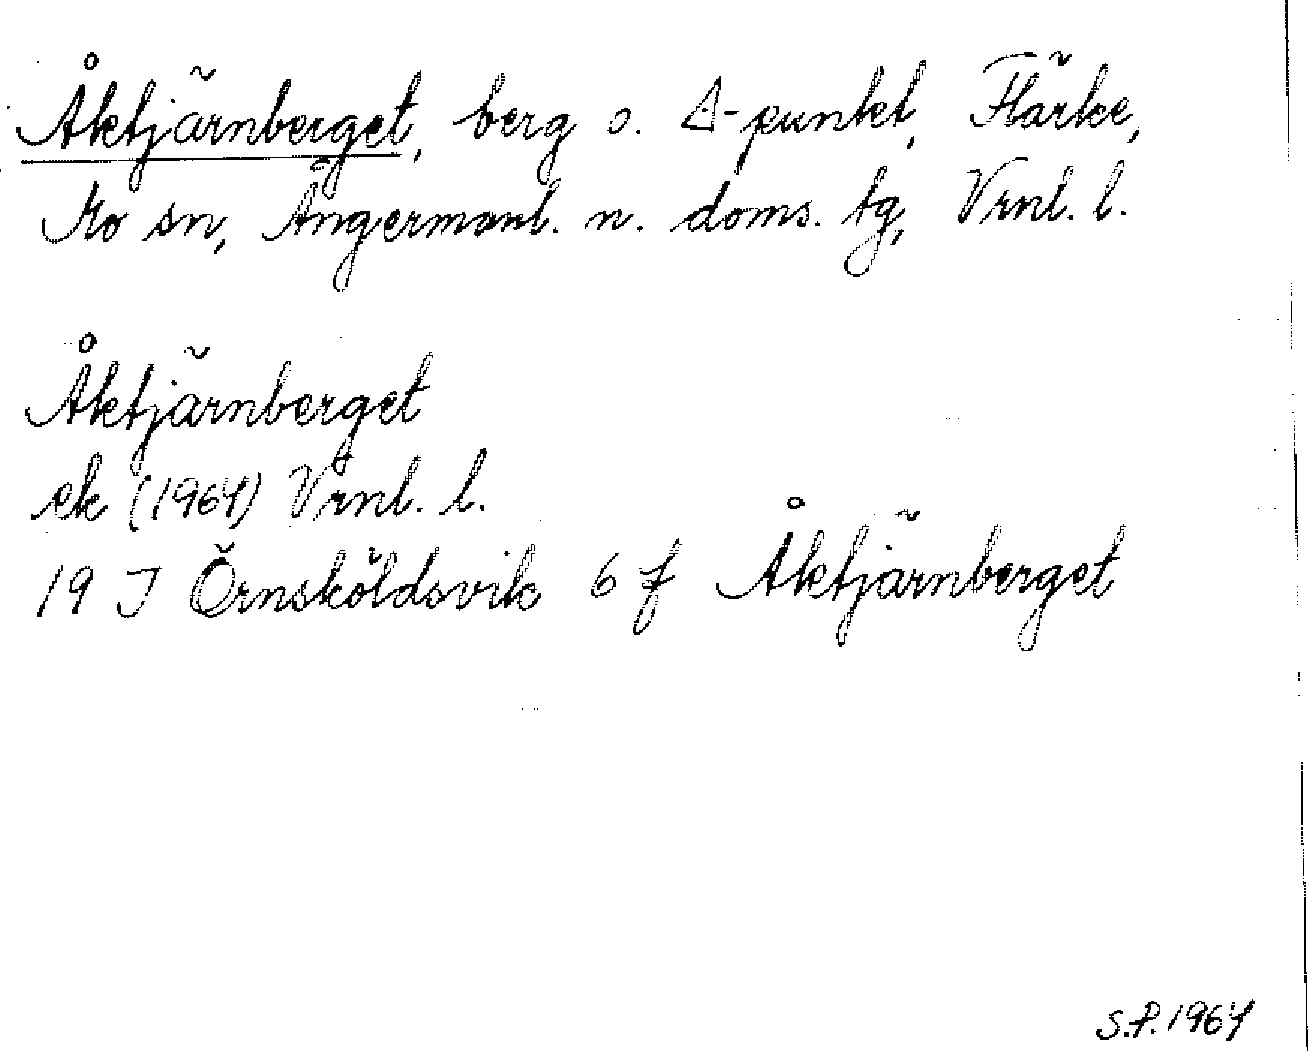 Åktjärnberget, berg o. △-punkt, Flärke,
Mo sn, Ångermanl. n. doms. tg, Vrnl. l.
Åktjärnberget
ek (1964) Vrnl. l.
19 J Örnsköldsvik 6 f Åktjärnberget
S.P. 1964